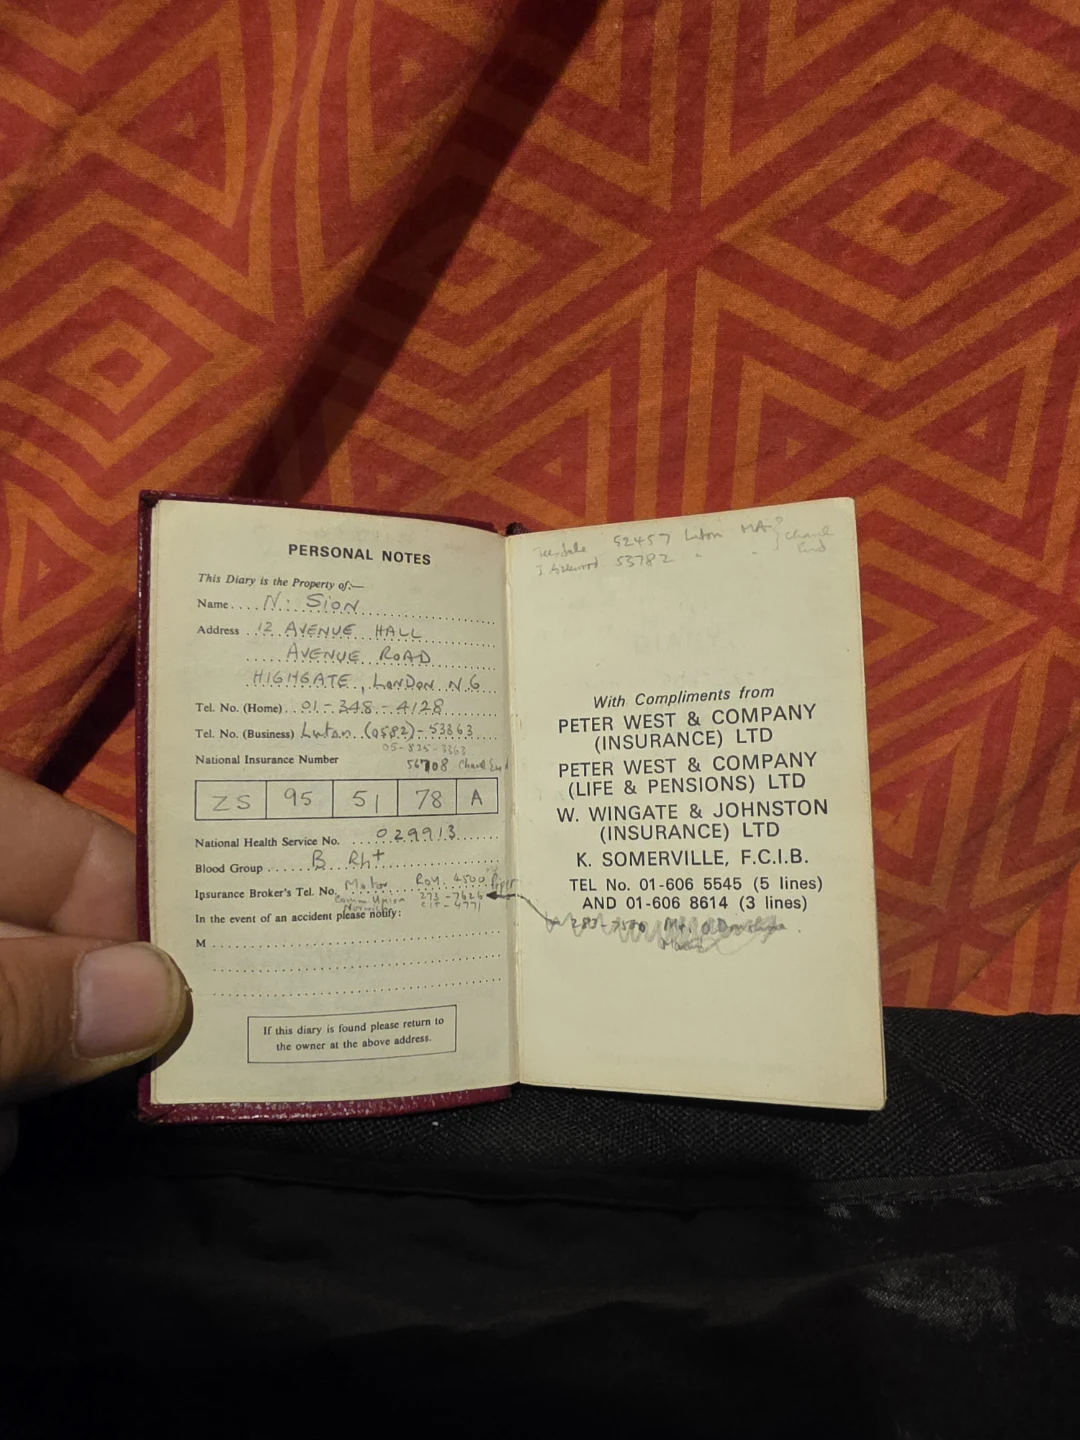 PERSONAL NOTES
This Diary is the Property of:—
Name.... N. SION
Address 12 AVENUE HALL
AVENUE ROAD
HIGHGATE, LONDON N.6
Tel. No. (Home) 01-348-4128
Tel. No. (Business) Luton (0582)-53363
05-825-3363
National Insurance Number
56708 Chaul End
ZS 95 51 78 A
National Health Service No. 029913
Blood Group B Rh+
Insurance Broker's Tel. No. Motor Roy. 4500
Comm Union 273-7626
Norwich 4771
In the event of an accident please notify:
M
If this diary is found please return to
the owner at the above address.
52457 Luton MA? Chaul
53782 " " End
With Compliments from
PETER WEST & COMPANY
(INSURANCE) LTD
PETER WEST & COMPANY
(LIFE & PENSIONS) LTD
W. WINGATE & JOHNSTON
(INSURANCE) LTD
K. SOMERVILLE, F.C.I.B.
TEL No. 01-606 5545 (5 lines)
AND 01-606 8614 (3 lines)
Mr.